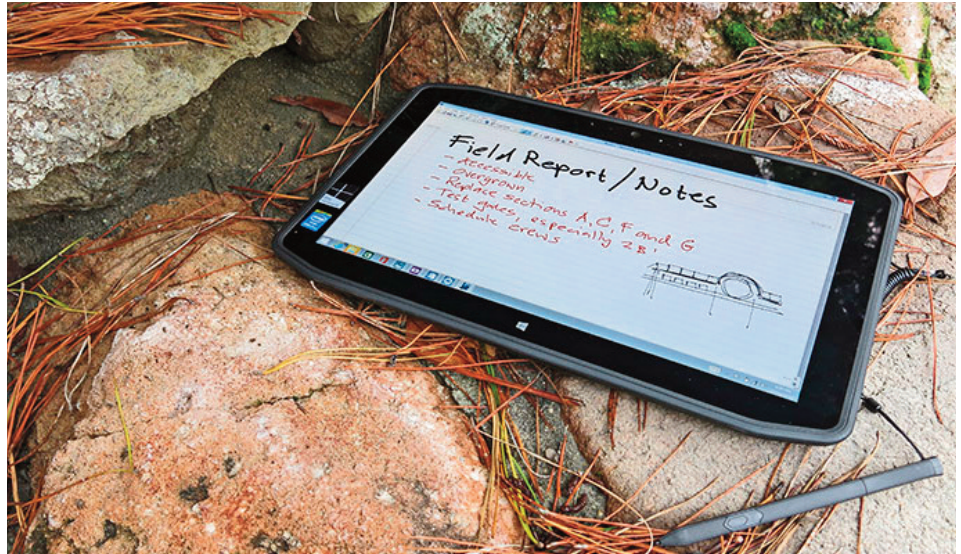 Field Report/Notes
- Accessible
- Overgrown
- Replace sections A, C, F and G
- Test gates, especially 2B.
- Schedule crews